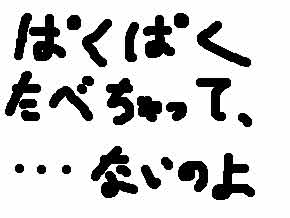 ぱくぱく
たべちゃって、
・・・ないのよ